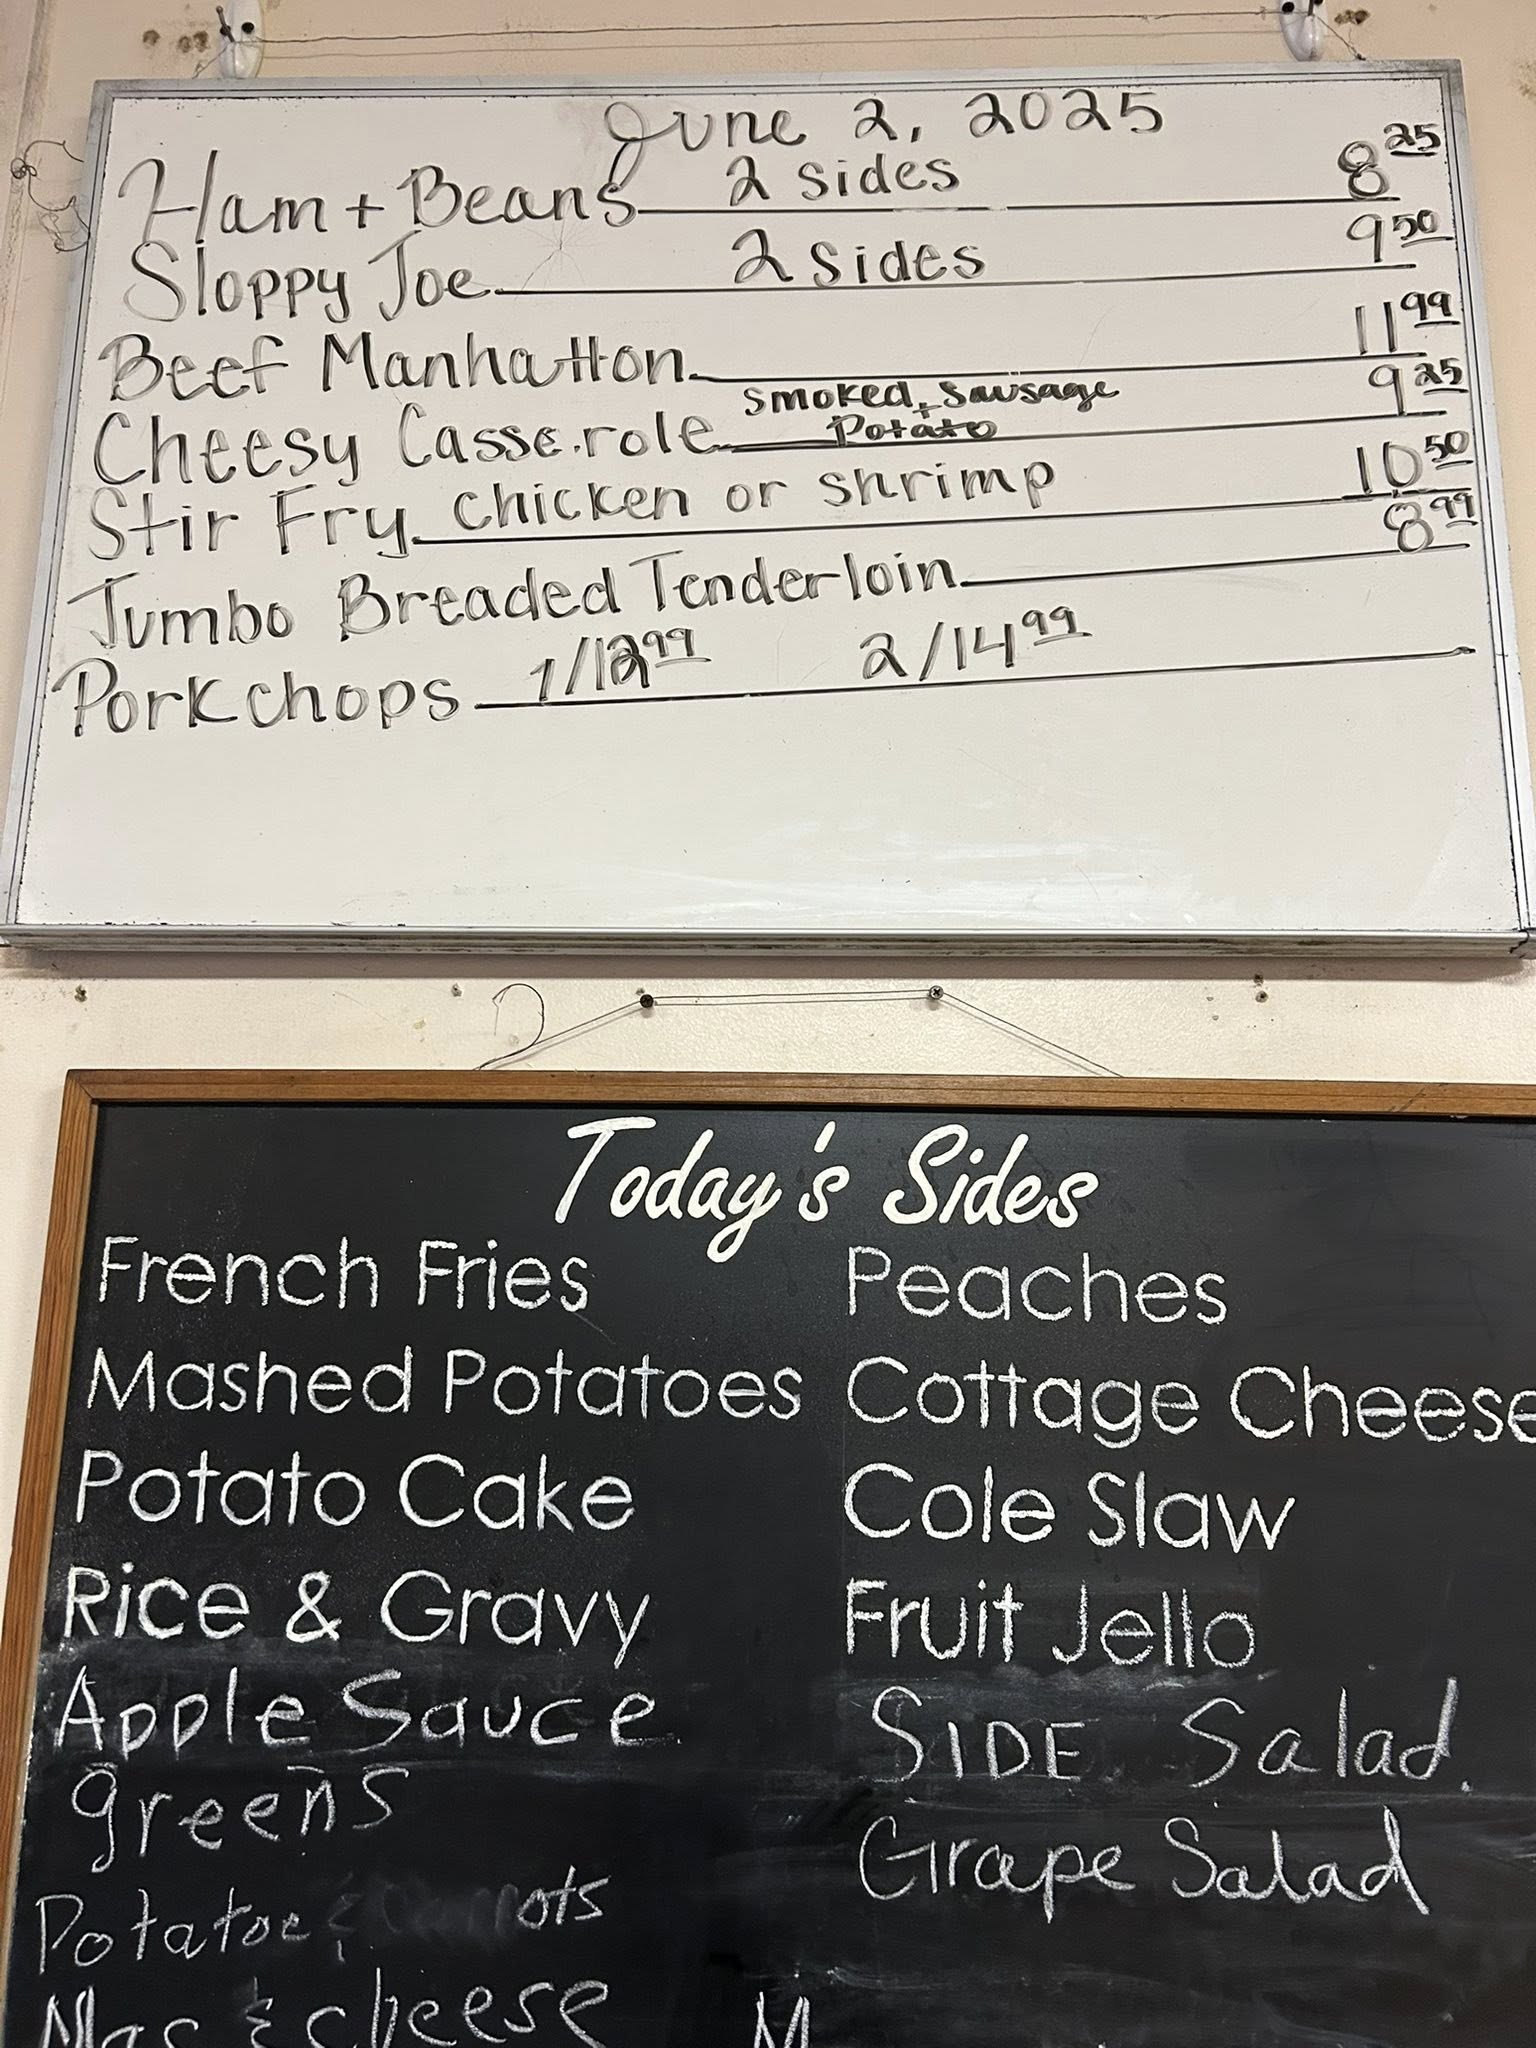 June 2, 2025
Ham + Beans 2 sides 8 25
Sloppy Joe 2 sides 9 50
Beef Manhatton 11 99
Cheesy Casserole smoked sausage + Potato 9 25
Stir Fry chicken or shrimp 10 50
Jumbo Breaded Tenderloin 8 99
Porkchops 1/12 99 2/14 99
Today's Sides
French Fries
Mashed Potatoes
Potato Cake
Rice & Gravy
Apple Sauce
greens
Potatoe &
Mac & cheese
Peaches
Cottage Cheese
Cole Slaw
Fruit Jello
SIDE Salad.
Grape Salad